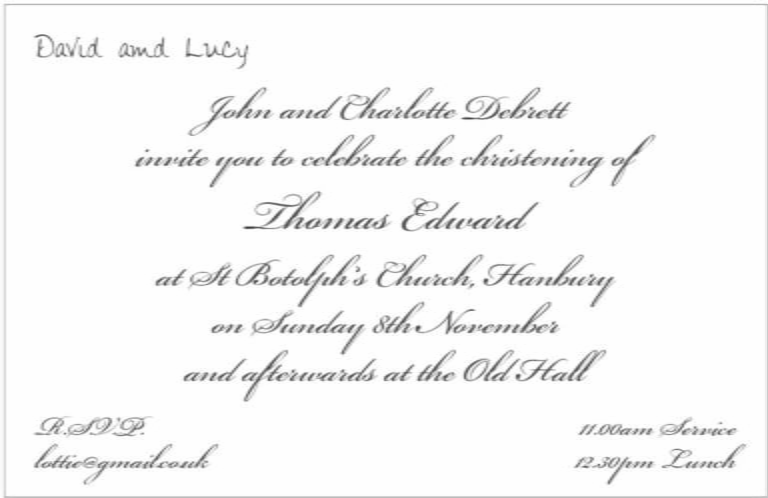 David and Lucy
John and Charlotte Debrett
invite you to celebrate the christening of
Thomas Edward
at St Botolph's Church, Hanbury
on Sunday 8th November
and afterwards at the Old Hall
R.S.V.P.
lottie@gmail.co.uk
11.00am Service
12.30pm Lunch